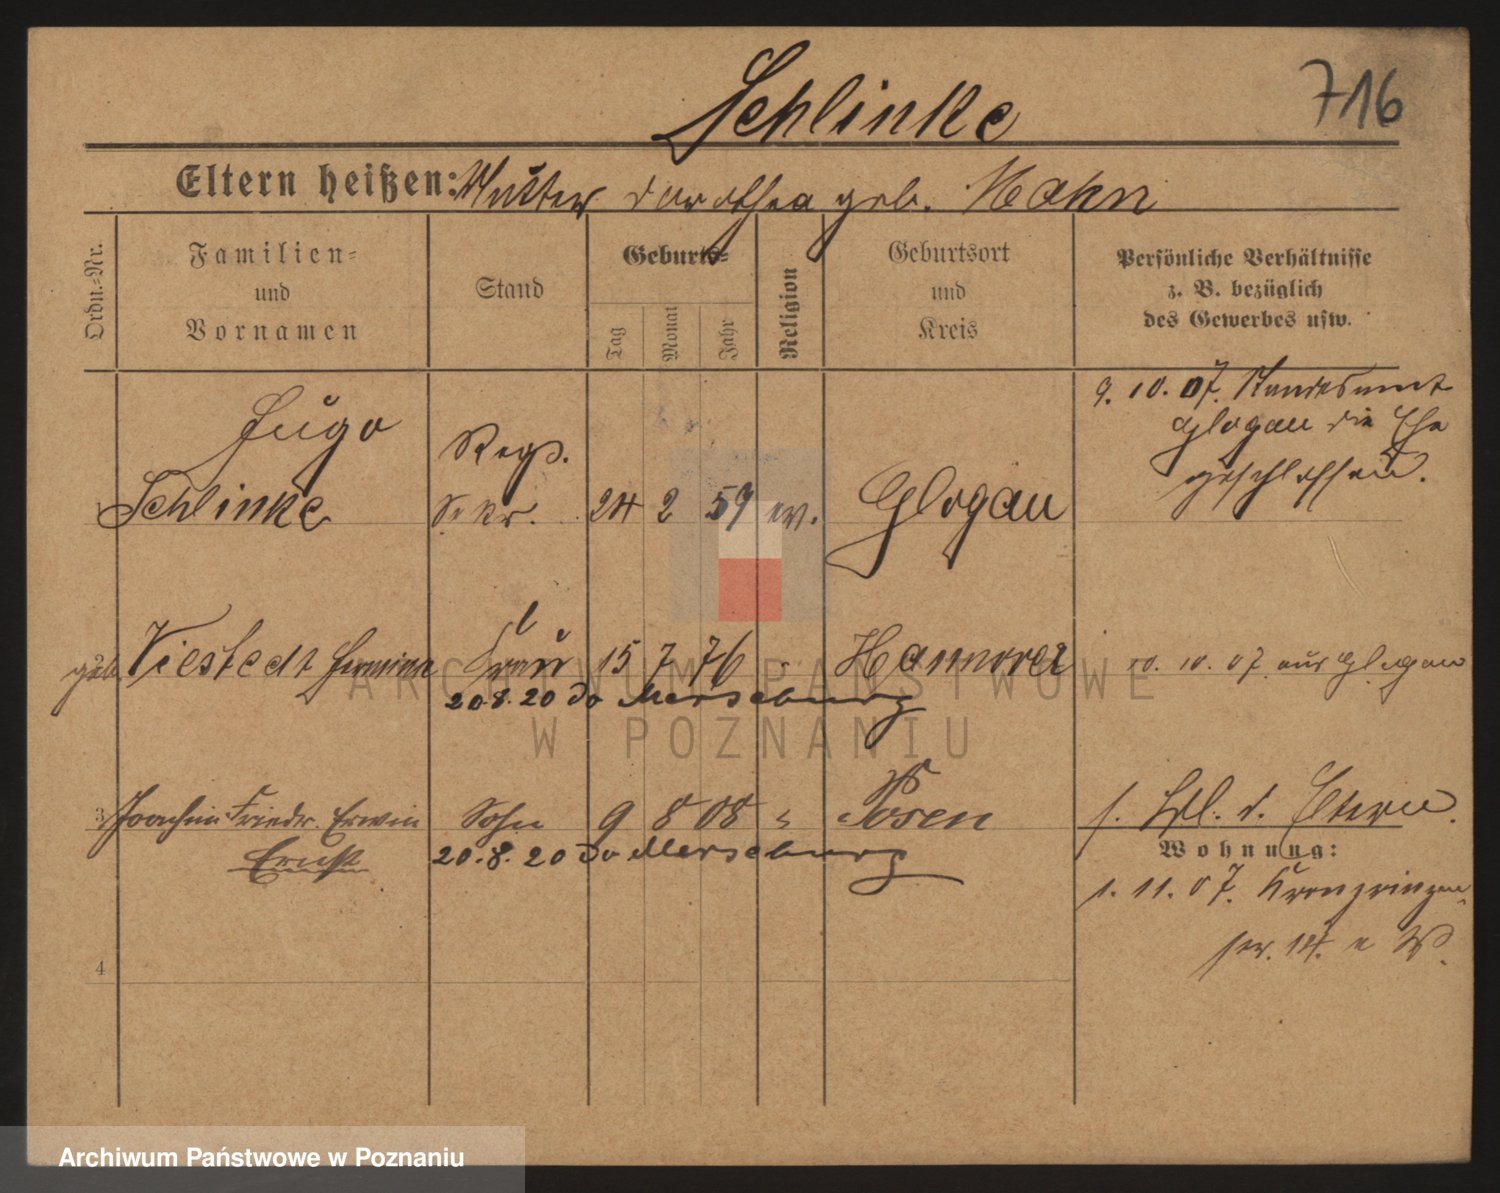 Schlinke
716
Eltern heißen: Mutter Dorothea geb. Hahn
Ordn.-Nr.
Familien-
und
Vornamen
Stand
Geburts-
Tag
Monat
Jahr
Religion
Geburtsort
und
Kreis
Persönliche Verhältnisse
z. B. bezüglich
des Gewerbes usw.
Hugo
Schlinke
Regs.
Sekr.
24 2 59 ev.
Glogau
9. 10. 07. Standesamt
Glogau die Ehe
geschlossen.
geb. Viestedt Hermine Frau 15 7 76 Hannover 10. 10. 07 aus Glogau
20.8.20 do Merseburg
3 Joachim Friedr. Erwin Sohn 9 8 08 Posen
Ernst
20.8.20 do Merseburg
s. d. Eltern.
Wohnung:
1. 11. 07. Kronprinzen
str. W.
4
ARCHIWUM PAŃSTWOWE
W POZNANIU
Archiwum Państwowe w Poznaniu